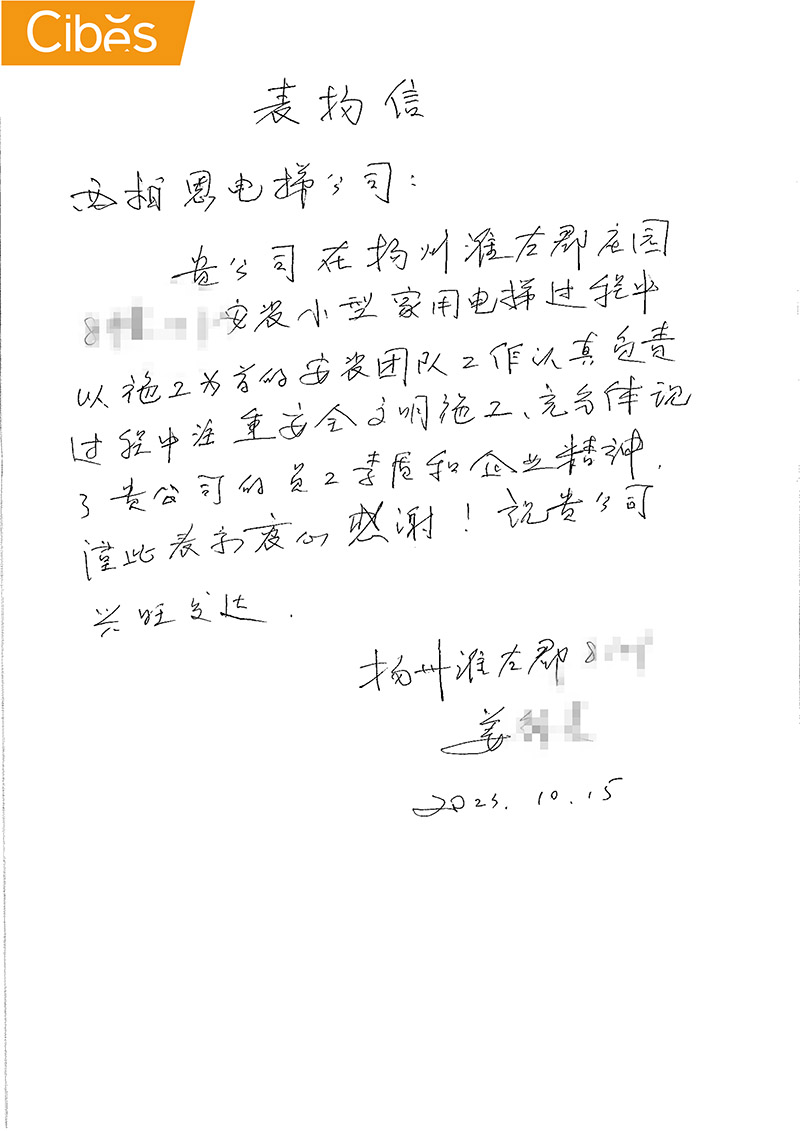 Cibes
表扬信
西柏恩电梯公司：
贵公司在扬州淮左郡庄园
8 安装小型家用电梯过程中
以施工为首的安装团队工作认真负责
过程中注重安全文明施工、充分体现
了贵公司的员工素质和企业精神.
谨此表示衷心感谢！祝贵公司
兴旺发达.
扬州淮左郡8
姜
2023.10.15